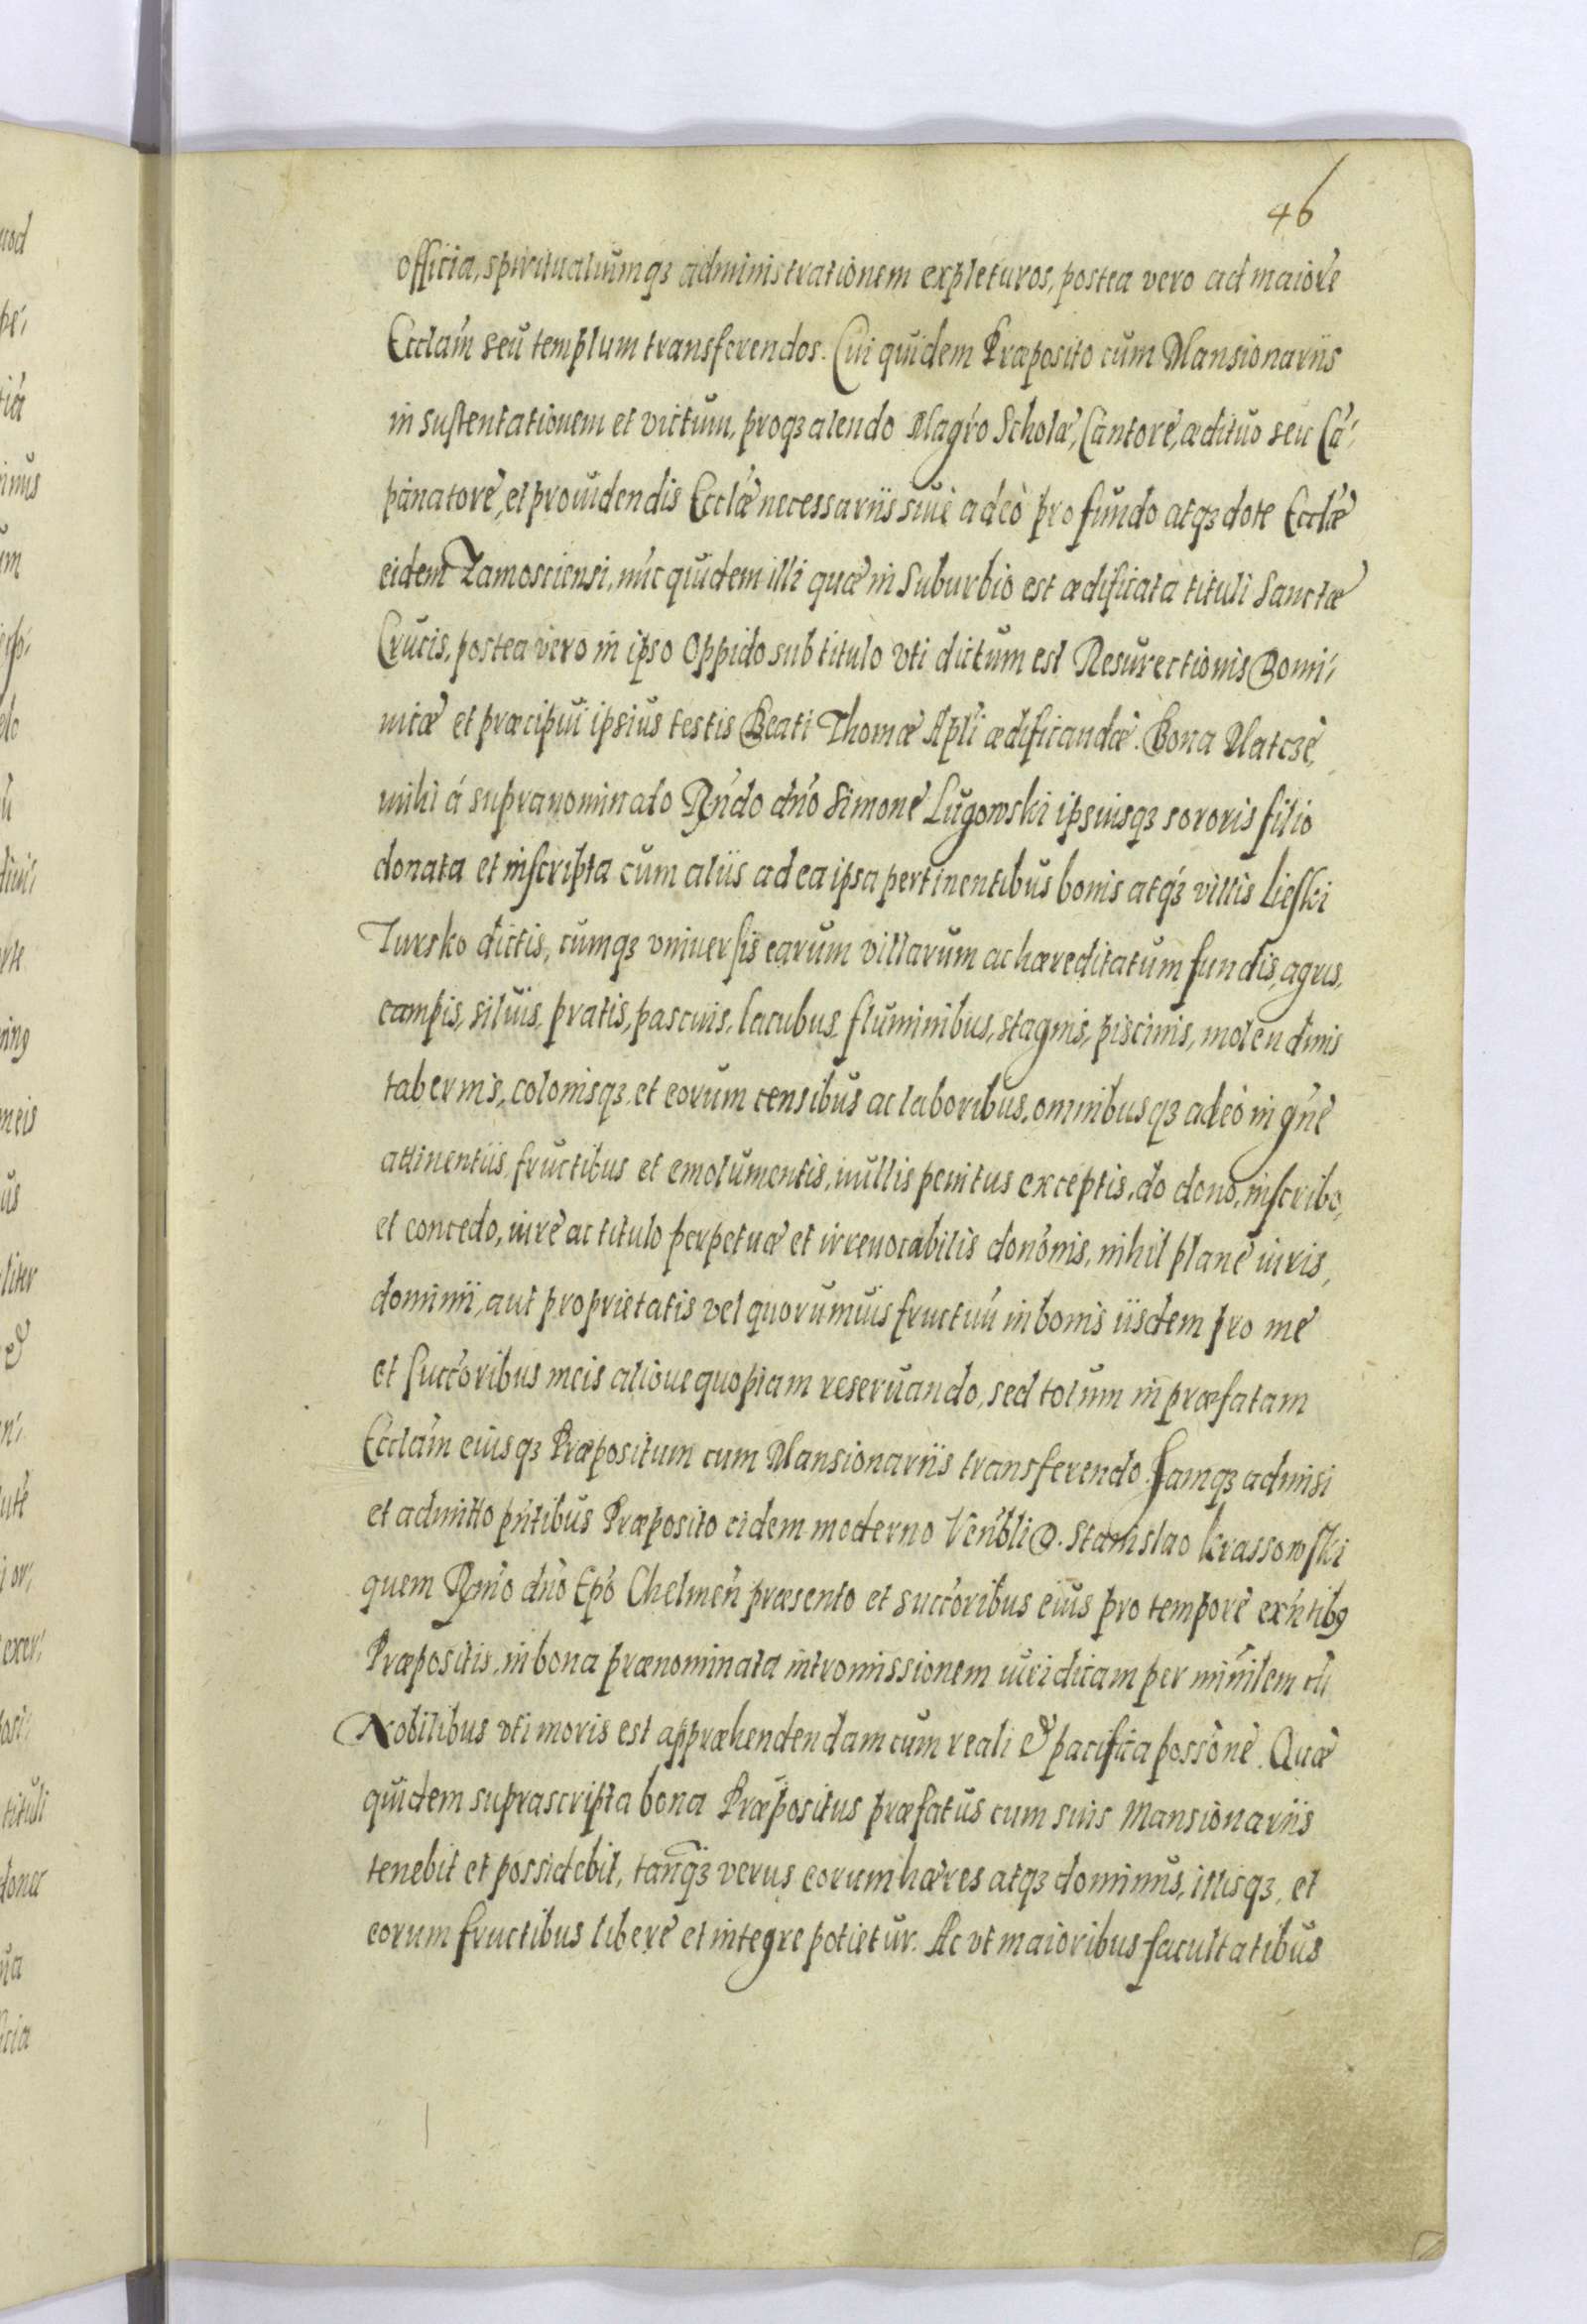 46
officia, spiritualiumqȝ administrationem expleturos, postea vero ad maiorē
Ecclām seu templum transferendos. Cui quidem Præposito cum Mansionariis
in sustentationem et victum, proqȝ alendo Magrō Scholæ, Cantore, ædituo seu Cā-
panatore, et prouidendis Ecclæ necessariis siue adeò pro fundo atqȝ dote Ecclæ
eidem Zamosciensi, nūc quidem illi quæ in Suburbio est ædificata tituli Sanctæ
Crucis, postea vero in ipso Oppido sub titulo vti dictum est Resurectionis Domi-
nicæ et præcipui ipsius testis Beati Thomæ Apli ædificandæ. Bona Matczē,
mihi á supranominato Rndo dno Simone Lugowski ipsiusqȝ sororis filio
donata et inscripta cum aliis ad ea ipsa pertinentibus bonis atqȝ villis Lieski
Tursko dictis, cumqȝ vniuersis earum villarum ac hæreditatum fundis, agris,
campis, siluis, pratis, pascuis, lacubus, fluminibus, stagnis, piscinis, molendinis
tabernis, colonisqȝ et eorum censibus ac laboribus, omnibusqȝ adeò in gne
attinentiis fructibus et emolumentis, nullis penitus exceptis, do dono, inscribo,
et concedo, iure ac titulo perpetuæ et irreuocabilis donōnis, nihil plane iuris,
dominii, aut proprietatis vel quorumuis fructuū in bonis iisdem pro me
et succōribus meis alioue quopiam reseruando, sed totum in præfatam
Ecclām eiusqȝ Præpositum cum Mansionariis transferendo. Iamqȝ admisi
et admitto pntibus Præposito eidem moderno Venbli D. Stanislao Krassowski
quem Rmo dno Epo Chelmen præsento et succōribus eius pro tempore exntibꝰ
Præpositis, in bona prænominata intromissionem iuridicam per minilem cū
Nobilibus vti moris est appræhendendam cum reali & pacifica possōne. Quæ
quidem suprascripta bona Præpositus præfatus cum suis Mansionariis
tenebit et possidebit, tanqȝ verus eorum hæres atqȝ dominus, illisqȝ, et
eorum fructibus libere et integre potietur. Ac vt maioribus facultatibus